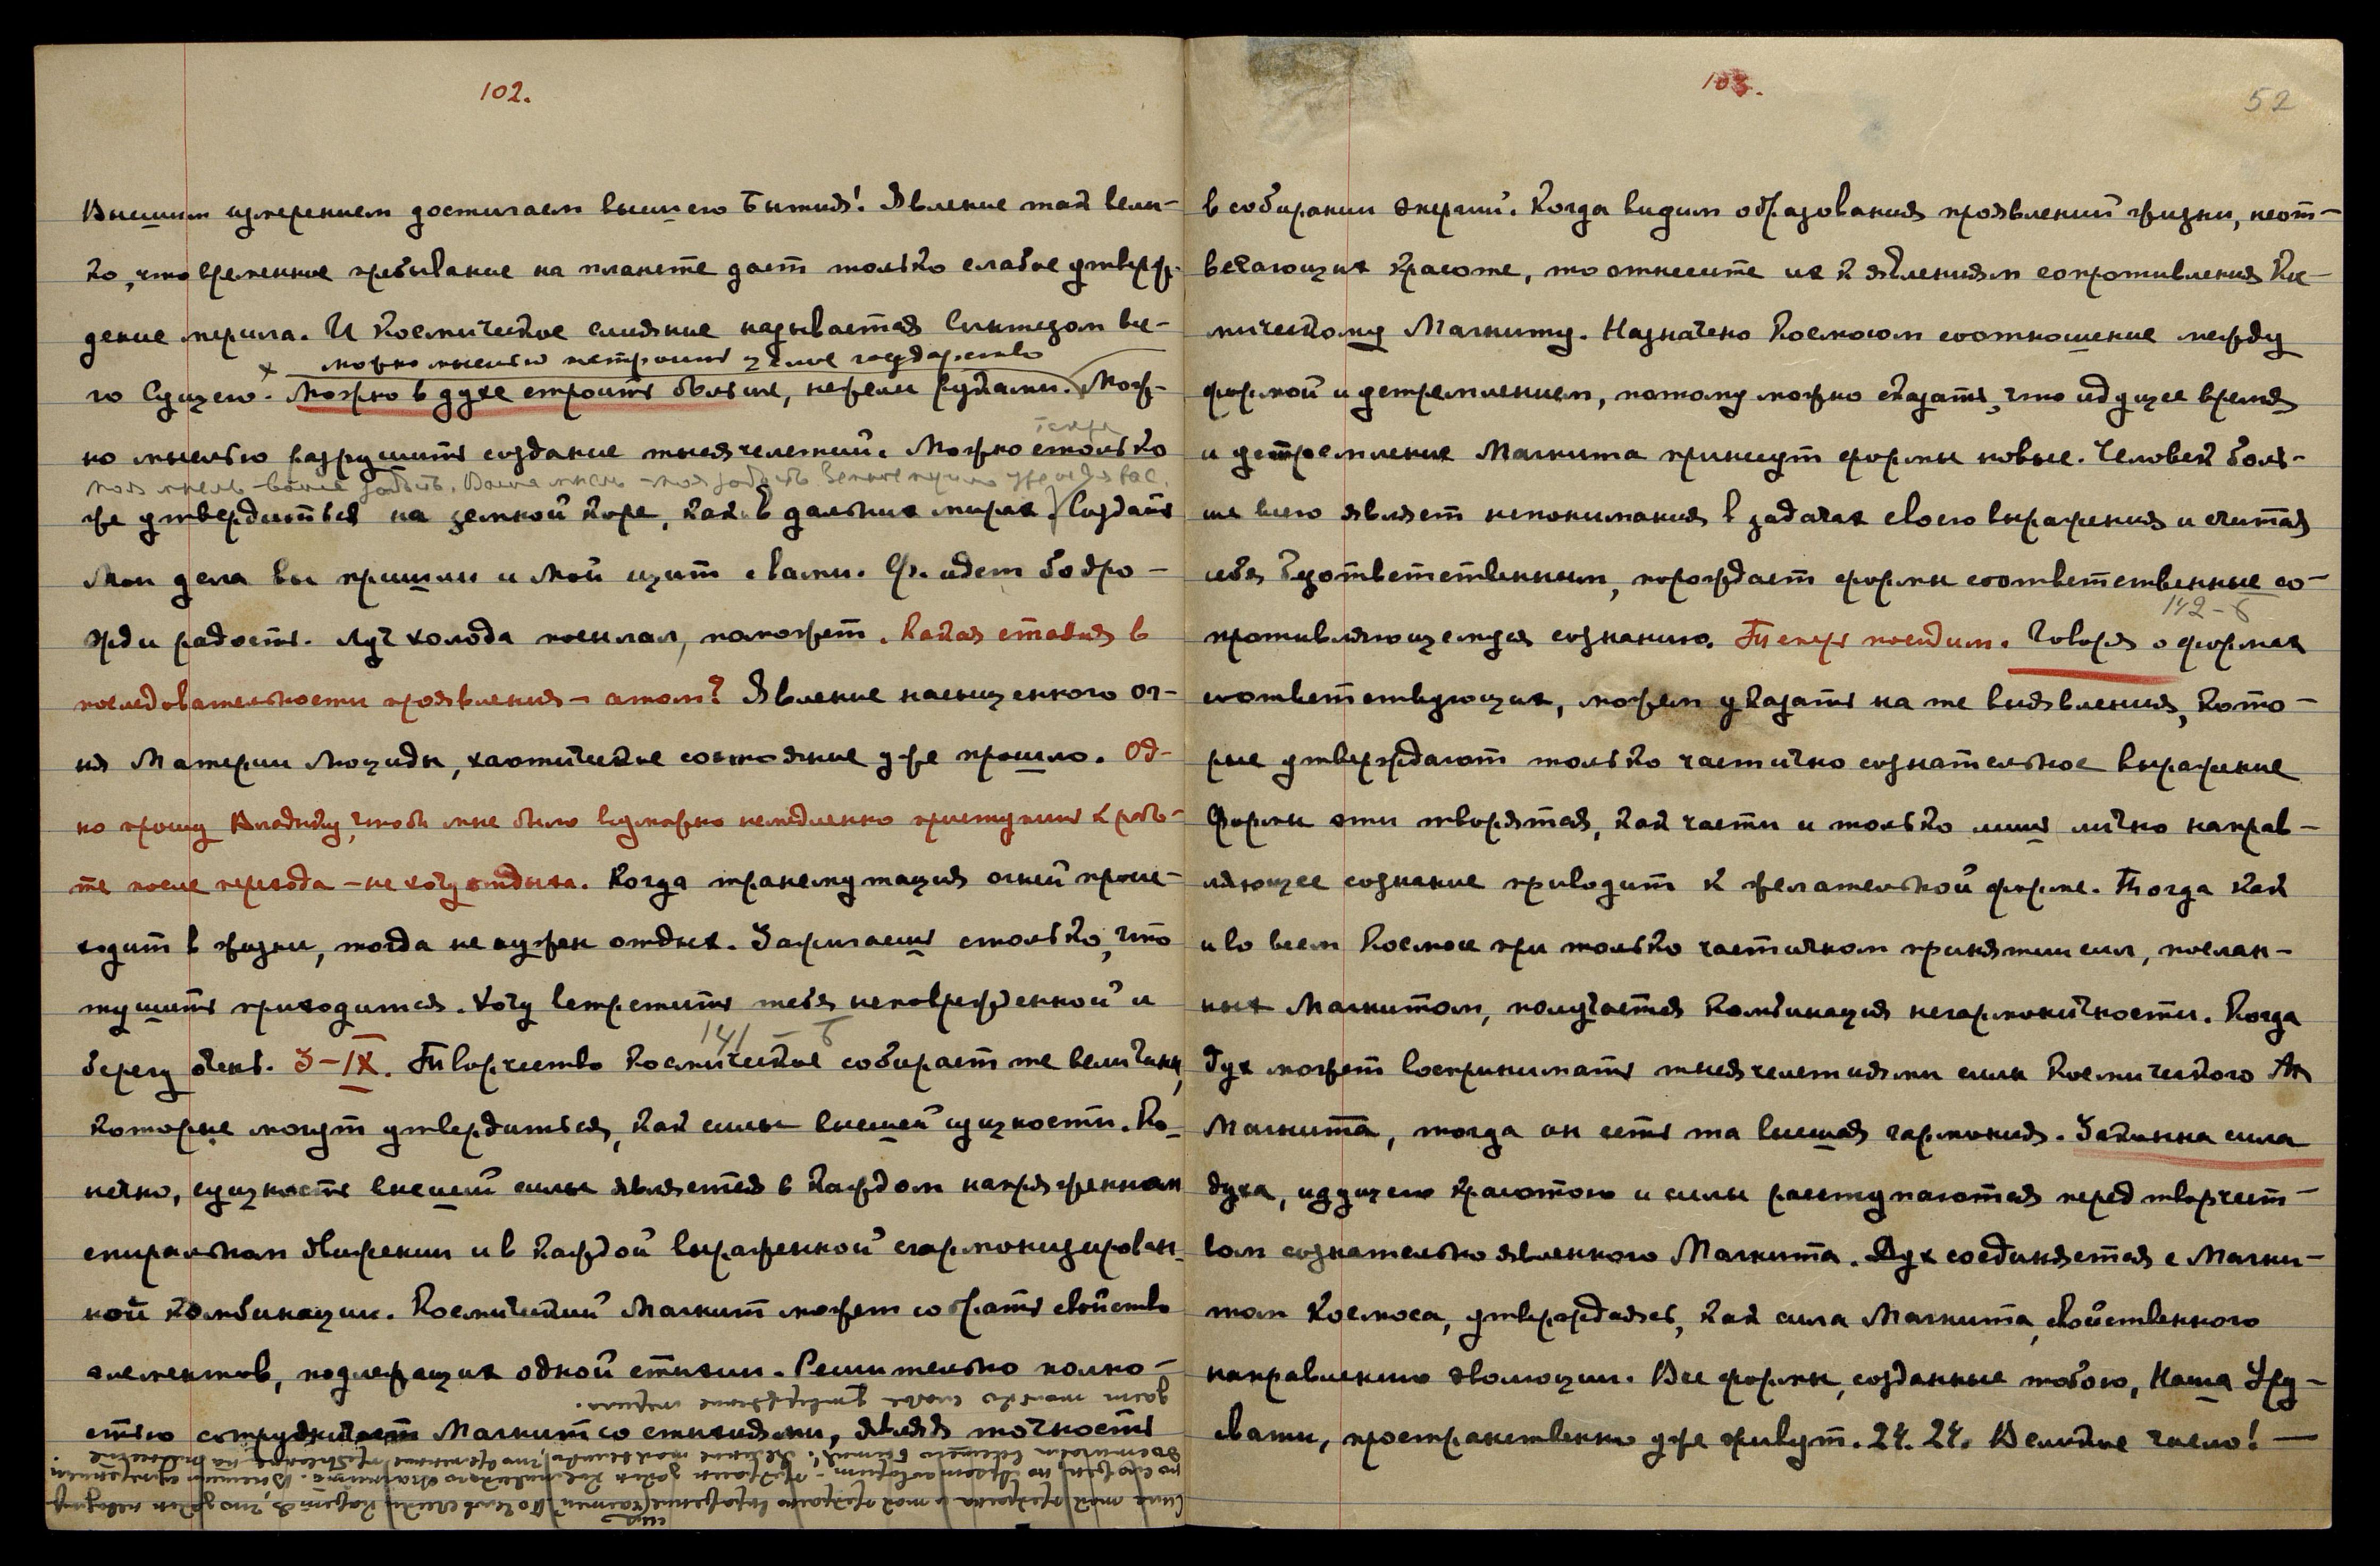 102.
Высшим измерением достигаем высшего Бытия! Явление так вели-
ко, что временное пребывание на планете дает только слабое утверж-
дение мерила. И Космическое слияние называется Синтезом все-
го Сущего. Можно в духе строить больше, нежели руками. Мож-
можно мыслью построить целое государство
но мыслью разрушить создание тысячелетий. Можно столько
же утвердиться на земной коре, как в дальних мирах. Создать
моя мысль – ваша Ваша мысль – моя
Мои дела вы пришли и Мой щит с вами. Ф. идет бодро –
жди радость. Луч холода посылал, поможет. Какая стадия в
последовательности проявления – атом? Явление насыщенного ог-
ня Материи Люциды, хаотическое состояние уже прошло. Од-
но прошу Владыку, чтобы мне было возможно немедленно приступить к рабо-
те после перехода – не хочу отдыха. Когда трансмутация огней проис-
ходит в жизни, тогда не нужен отдых. Зажигаешь столько, что
тушить приходится. Хочу встретить тебя неповрежденной и
берегу очень. 3–IX. Творчество Космическое собирает те величины,
141 – б
которые могут утвердиться, как силы высшей сущности. Ко-
нечно, сущность высшей силы является в каждом напряженном
спиральном движении и в каждой выраженной сгармонизирован-
ной комбинации. Космический Магнит может собрать свойства
элементов, подлежащих одной стихии. Решительно полно-
стью сотрудничает Магнит со стихиями, являя точность
дает только слабое утверждение мерила.
103.
52
в собирании энергий. Когда видим образования проявлений жизни, неот-
вечающих красоте, то отнесите их к явлениям сопротивления Кос-
мическому Магниту. Назначено Космосом соотношение между
формой и устремлением, потому можно сказать, что идущее время
и устремление Магнита принесут формы новые. Человек боль-
ше всего являет непонимания в задачах своего выражения и считая
себя безответственным, порождает формы соответственные со-
противляющемуся сознанию. Теперь посидим. Говоря о формах
142 – б
соответствующих, можем указать на те выявления, кото-
рые утверждают только частично сознательное выражение
Формы эти творятся, как части и только лишь лично направ-
ляющее сознание приводит к желательной форме. Тогда как
и во всем Космосе при только частичном принятии сил, послан-
ных Магнитом, получается комбинация негармоничности. Когда
дух может воспринимать тысячелетиями силы Космического
Магнита, тогда он есть та высшая гармония. Законна сила
духа, идущего красотою и силы расступаются перед творчест-
вом сознательно явленного Магнита. Дух соединяется с Магни-
том Космоса, утверждаясь, как сила Магнита, свойственного
направлению эволюции. Все формы, созданные тобою, Наша Уру-
свати, пространственно уже живут. 24. 24. Великое число! —